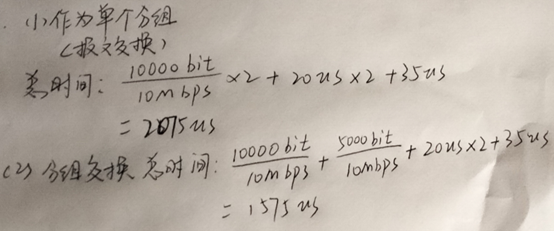 (1) 作为单个分组
(报文交换)
总时间: 10000 bit / 10Mbps × 2 + 20us × 2 + 35us
= 2075us
(2) 分组交换 总时间: 10000 bit / 10Mbps + 5000 bit / 10Mbps + 20us × 2 + 35us
= 1575us